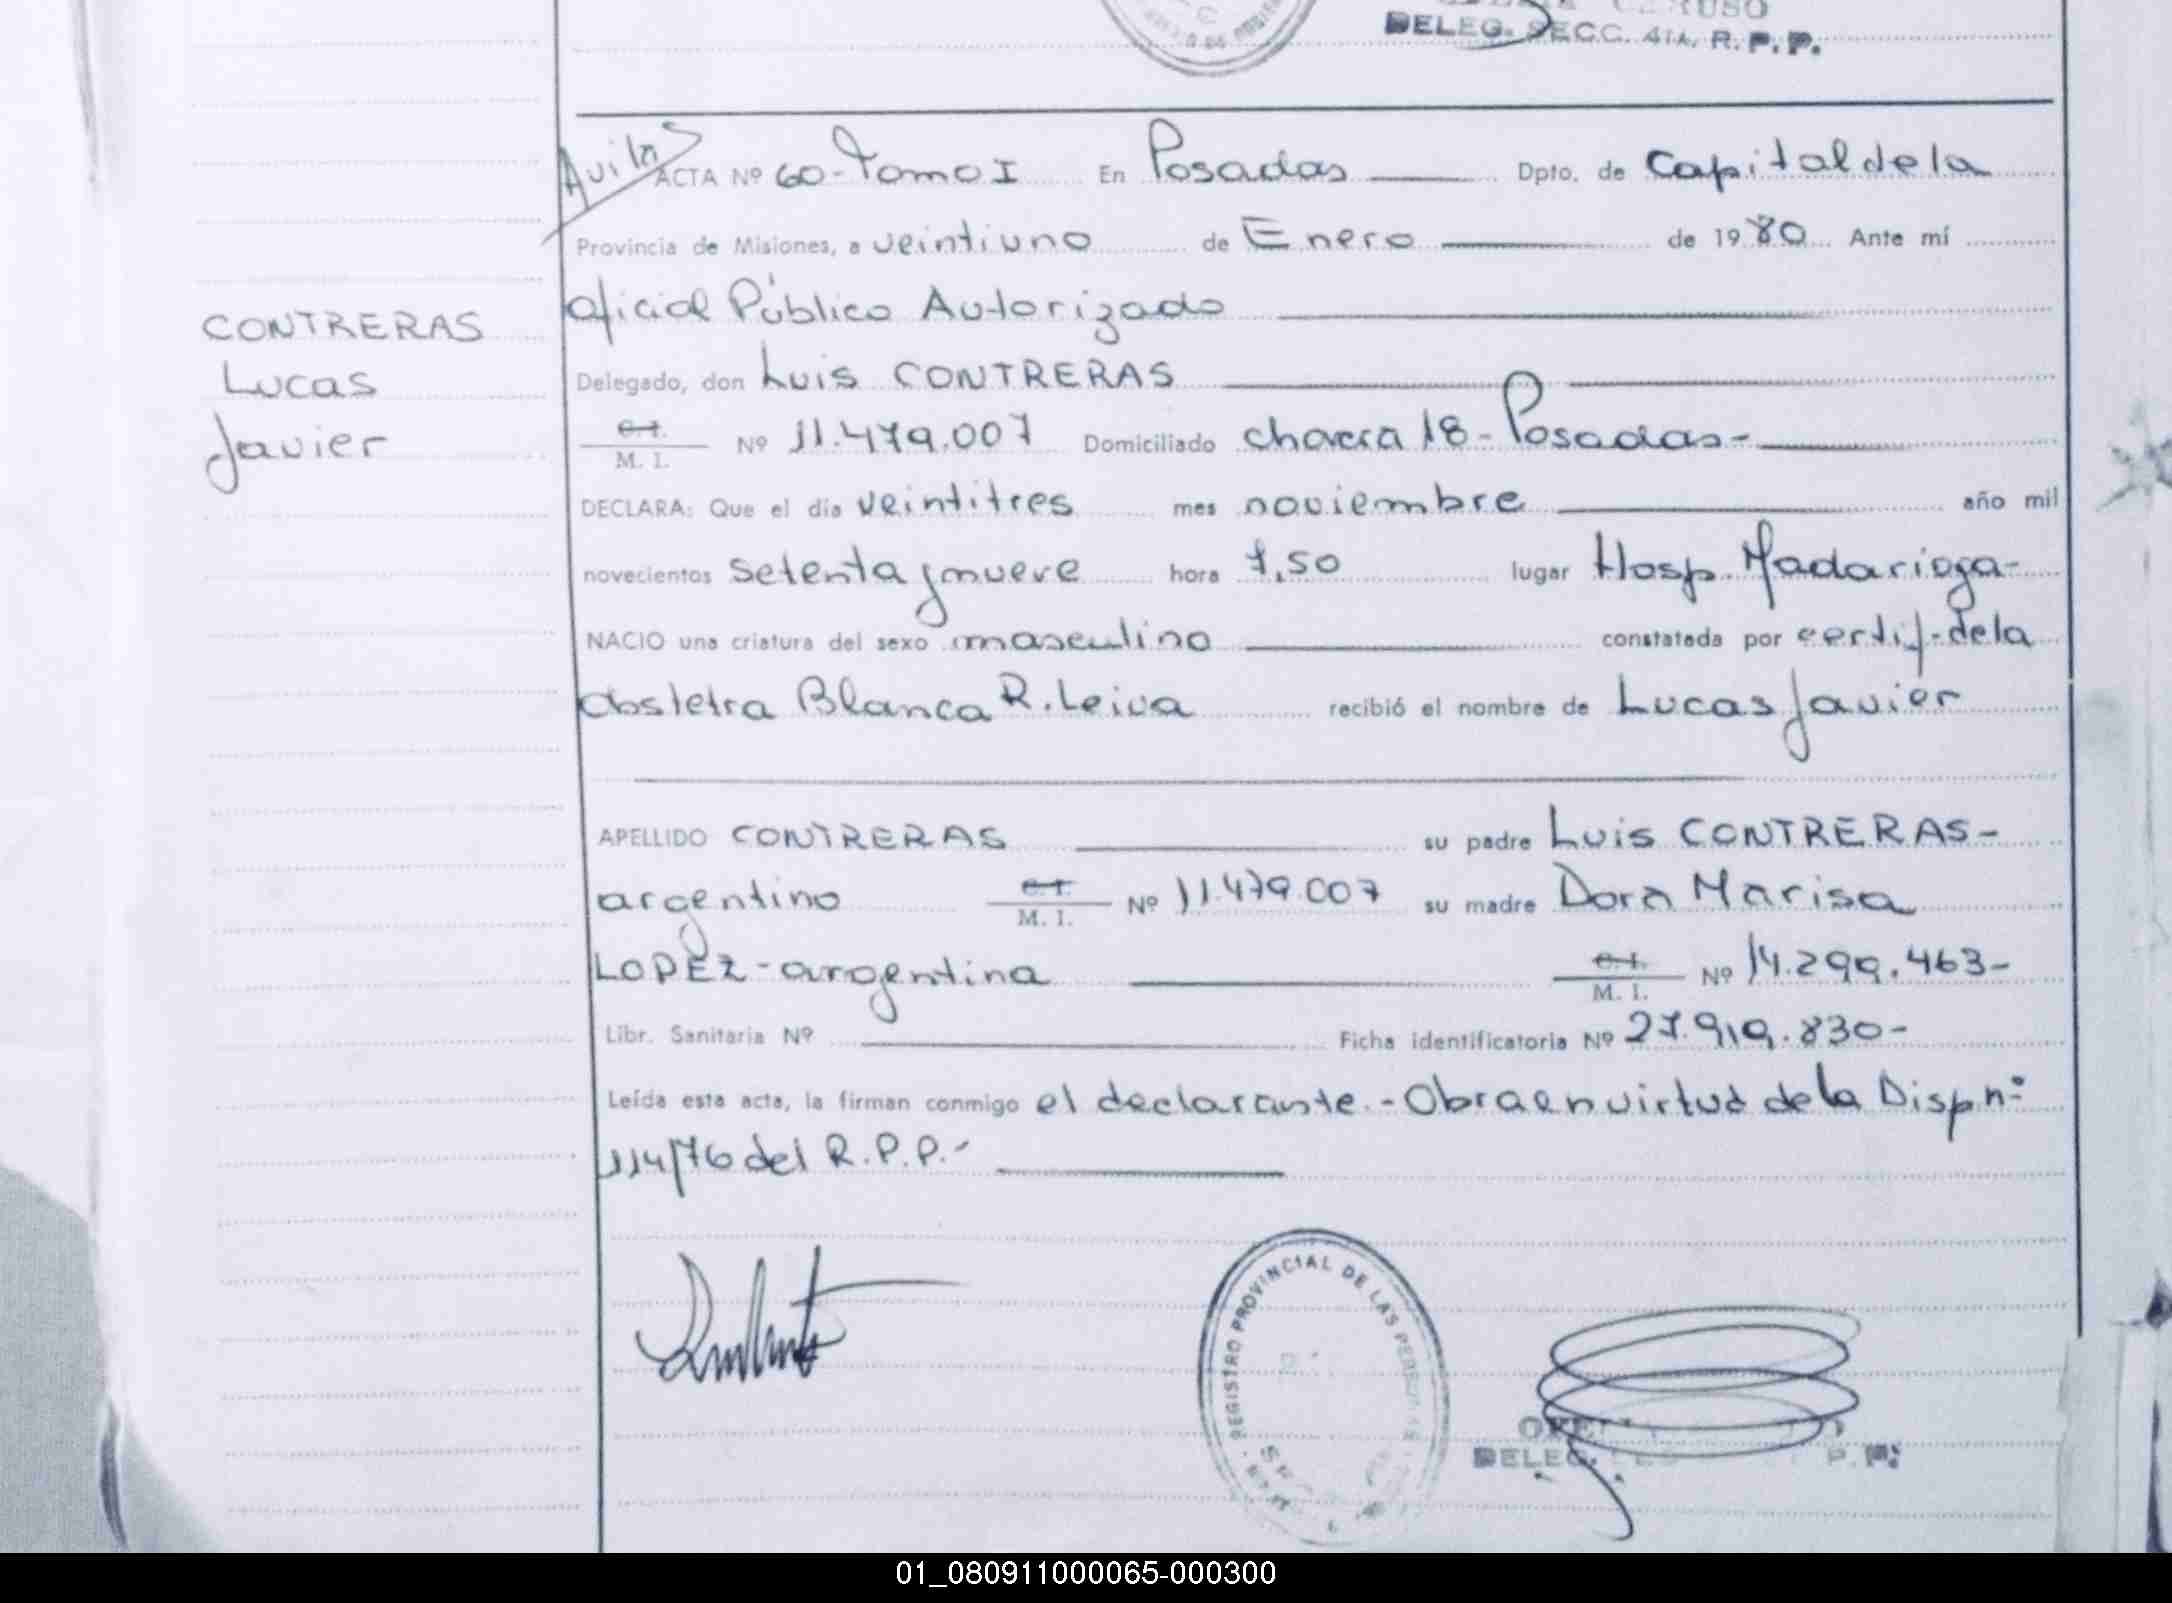 DELEG. SECC. 4ta. R.P.P.
Avila
ACTA Nº 60-Tomo I En Posadas Dpto. de Capital de la
Provincia de Misiones, a veintiuno de Enero de 1980 Ante mí
Oficial Público Autorizado
CONTRERAS
Lucas
Javier
Delegado, don Luis CONTRERAS
C.I.
M. I. Nº 11.479.007 Domiciliado chacra 18-Posadas-
DECLARA: Que el día veintitres mes noviembre año mil
novecientos setenta y nueve hora 7,50 lugar Hosp. Madariaga-
NACIO una criatura del sexo masculino constatada por certif. de la
obstetra Blanca R. Leiva recibió el nombre de Lucas Javier
APELLIDO CONTRERAS su padre Luis CONTRERAS-
argentino C.I. M. I. Nº 11.479.007 su madre Dora Marisa
LOPEZ-argentina C.I. M. I. Nº 14.299.463-
Libr. Sanitaria Nº Ficha identificatoria Nº 27.919.830-
Leída esta acta, la firman conmigo el declarante.-Obra en virtud de la Disp. nº
114/76 del R.P.P.-
REGISTRO PROVINCIAL DE LAS PERSONAS
DELEG. P.P.
01_080911000065-000300